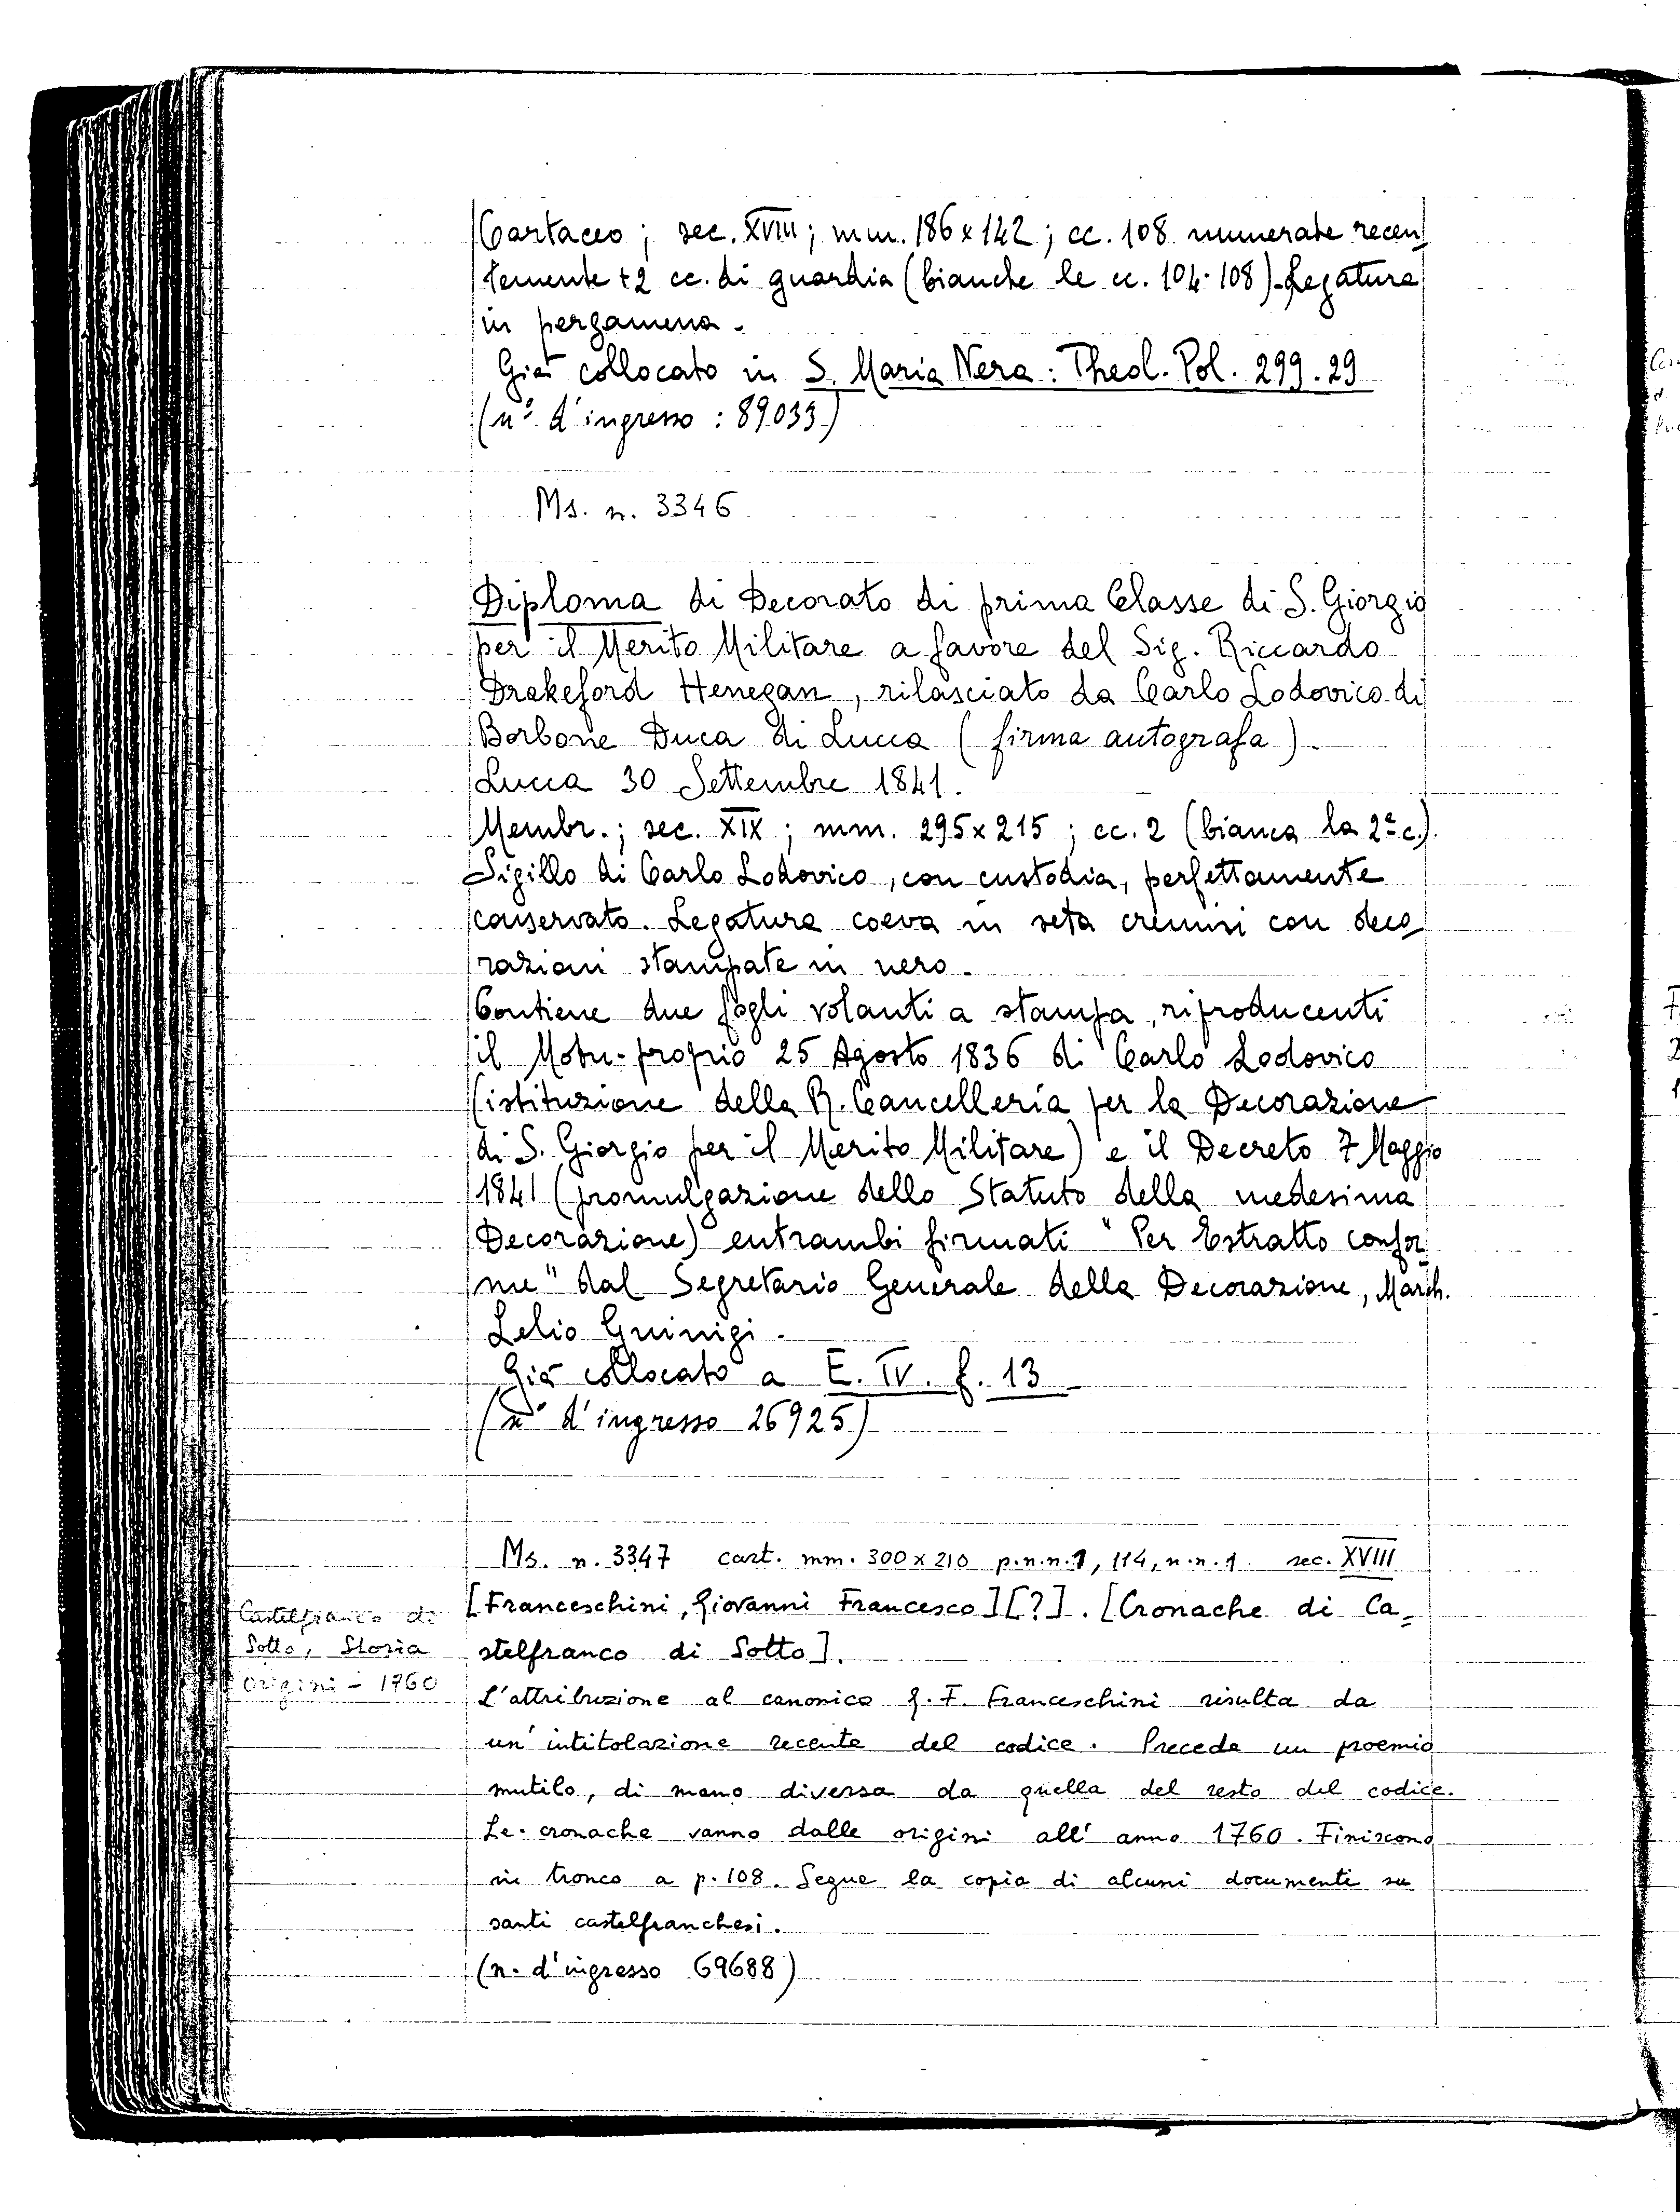 Cartaceo; sec. XVIII; mm. 186 x 142; cc. 108 numerate recen
temente + 2 cc. di guardia (bianche le cc. 104-108). Legatura
in pergamena.
Già collocato in S. Maria Nera: Theol. Pol. 299.29
(n° d'ingresso: 89033)
Ms. n. 3346
Diploma di Decorato di prima Classe di S. Giorgio
per il Merito Militare a favore del Sig. Riccardo
Drakeford Henegan, rilasciato da Carlo Lodovico di
Borbone Duca di Lucca (firma autografa).
Lucca 30 Settembre 1841.
Membr.; sec. XIX; mm. 295 x 215; cc. 2 (bianca la 2ª c.).
Sigillo di Carlo Lodovico, con custodia, perfettamente
conservato. Legatura coeva in seta cremisi con deco
razioni stampate in nero.
Contiene due fogli volanti a stampa, riproducenti
il Motu-proprio 25 Agosto 1836 di Carlo Lodovico
(istituzione della R. Cancelleria per la Decorazione
di S. Giorgio per il Merito Militare) e il Decreto 7 Maggio
1841 (promulgazione dello Statuto della medesima
Decorazione) entrambi firmati "Per Estratto confor
me" dal Segretario Generale della Decorazione, March.
Lelio Guinigi.
Già collocato a E. IV. f. 13
(n° d'ingresso 26925)
Ms. n. 3347 cart. mm. 300 x 210 p. n.n. 1, 114, n.n. 1. sec. XVIII
[Franceschini, Giovanni Francesco] [?]. [Cronache di Ca=
stelfranco di Sotto].
Castelfranco di
Sotto, Storia
origini - 1760
L'attribuzione al canonico G. F. Franceschini risulta da
un'intitolazione recente del codice. Precede un proemio
mutilo, di mano diversa da quella del resto del codice.
Le cronache vanno dalle origini all'anno 1760. Finiscono
in tronco a p. 108. Segue la copia di alcuni documenti su
santi castelfranchesi.
(n. d'ingresso 69688)